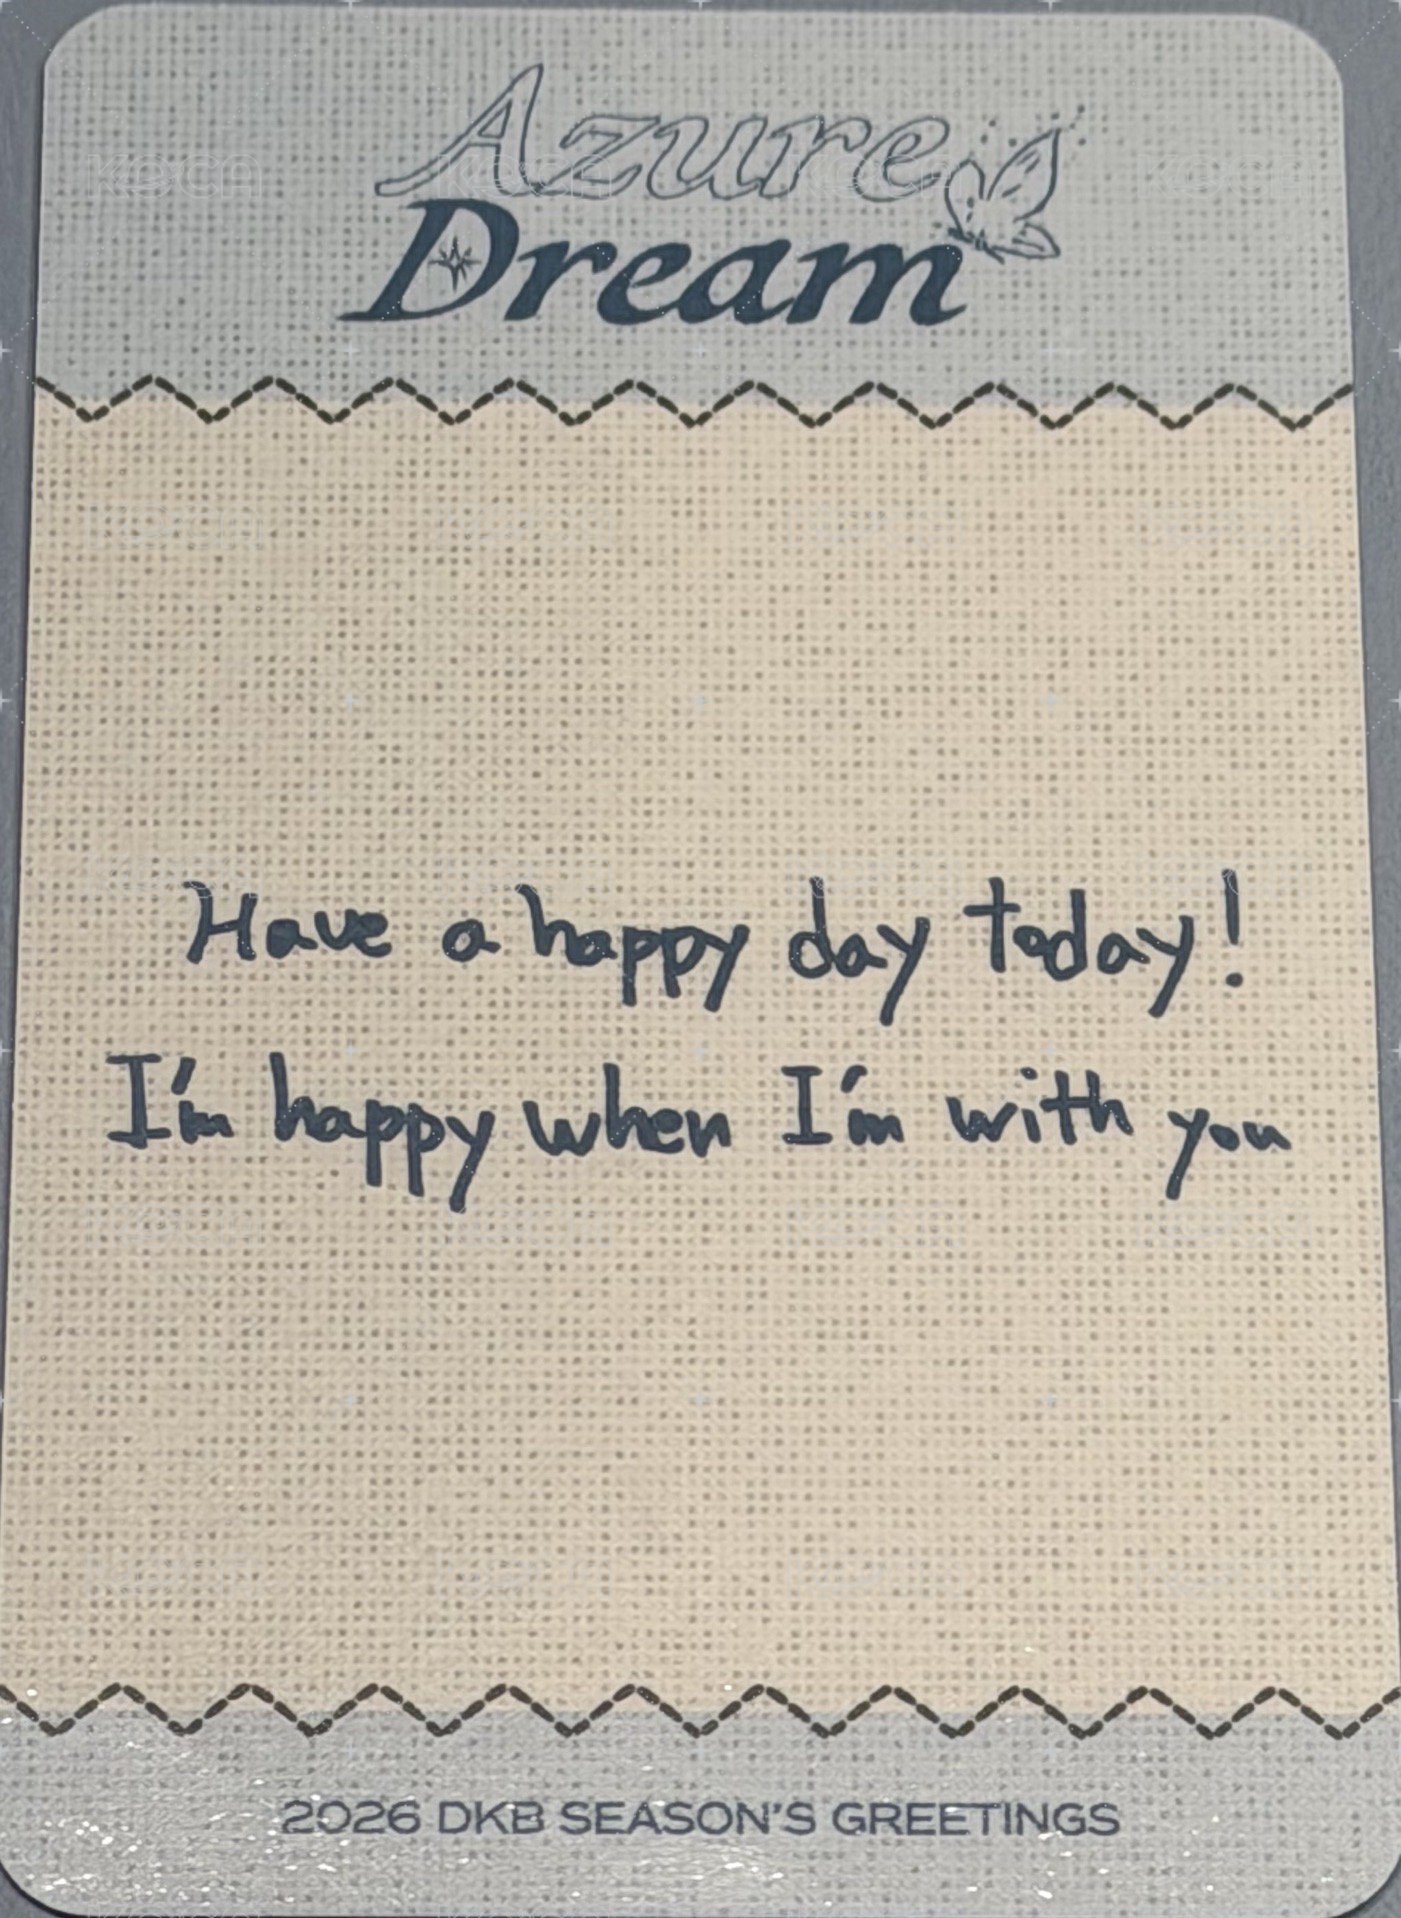 Azure
Dream
Have a happy day today!
I'm happy when I'm with you
2026 DKB SEASON'S GREETINGS